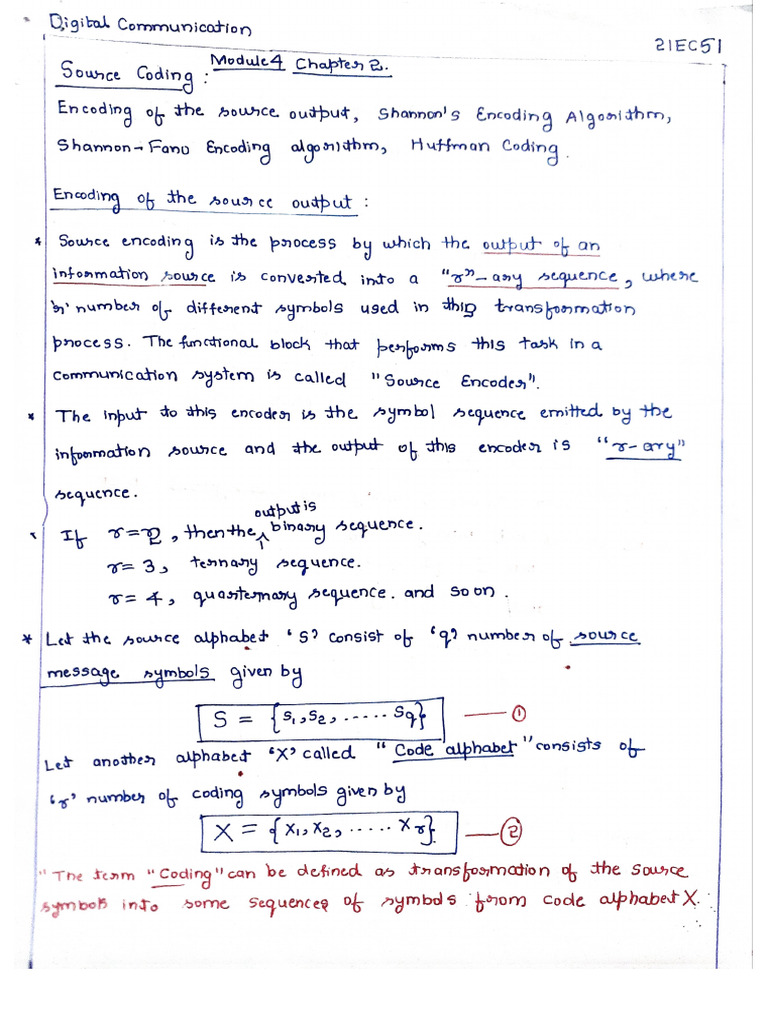 Digital Communication
21EC51
Module4 Chapter 2.
Source Coding :
Encoding of the source output, Shannon's Encoding Algorithm,
Shannon-Fano Encoding algorithm, Huffman Coding.
Encoding of the source output :
* Source encoding is the process by which the output of an
information source is converted into a "r"-ary sequence, where
'r' number of different symbols used in this transformation
process. The functional block that performs this task in a
communication system is called "Source Encoder".
* The input to this encoder is the symbol sequence emitted by the
information source and the output of this encoder is "r-ary"
sequence.
* If r=2, then the output is binary sequence.
r= 3, ternary sequence.
r= 4, quarternary sequence. and so on.
* Let the source alphabet 'S' consist of 'q' number of source
message symbols given by
S = {s₁, s₂, ..... sq} — ①
Let another alphabet 'X' called "Code alphabet" consists of
'r' number of coding symbols given by
X = {x₁, x₂, ..... xr} — ②
"The term "Coding" can be defined as transformation of the source
symbols into some sequences of symbols from code alphabet X.